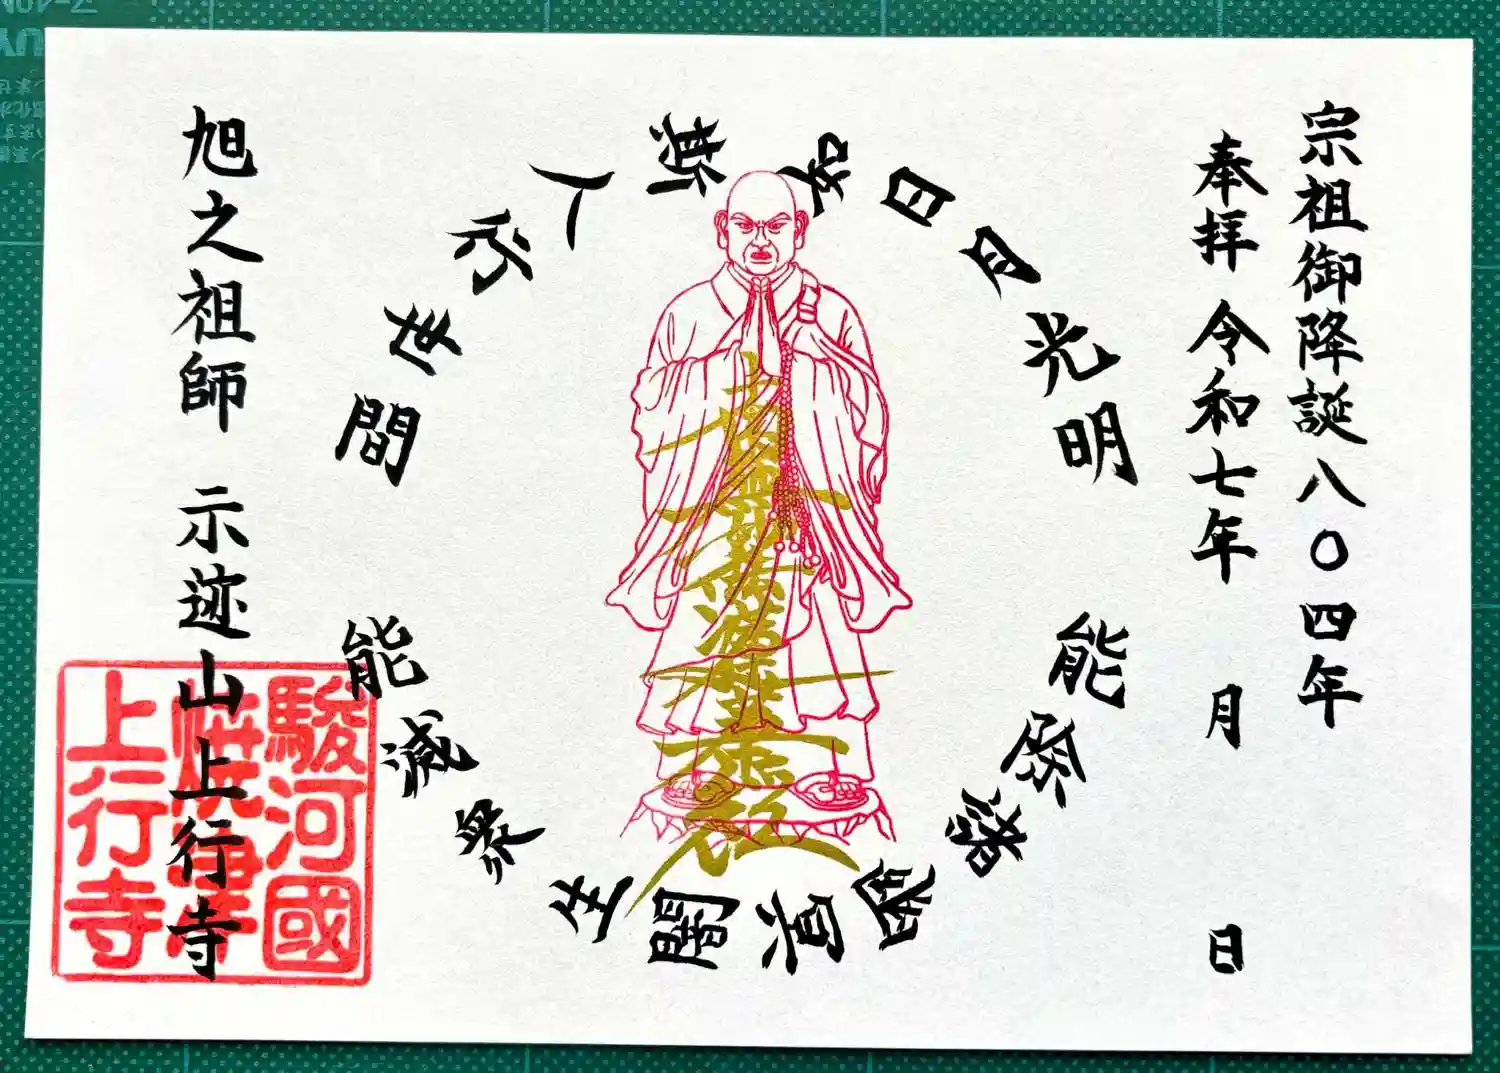 宗祖御降誕八〇四年
奉拝 令和七年 月 日
如日月光明
能除諸幽冥
斯人行世間
能滅衆生闇
南無妙法蓮華経
旭之祖師 示迹山上行寺
駿河國
上行寺